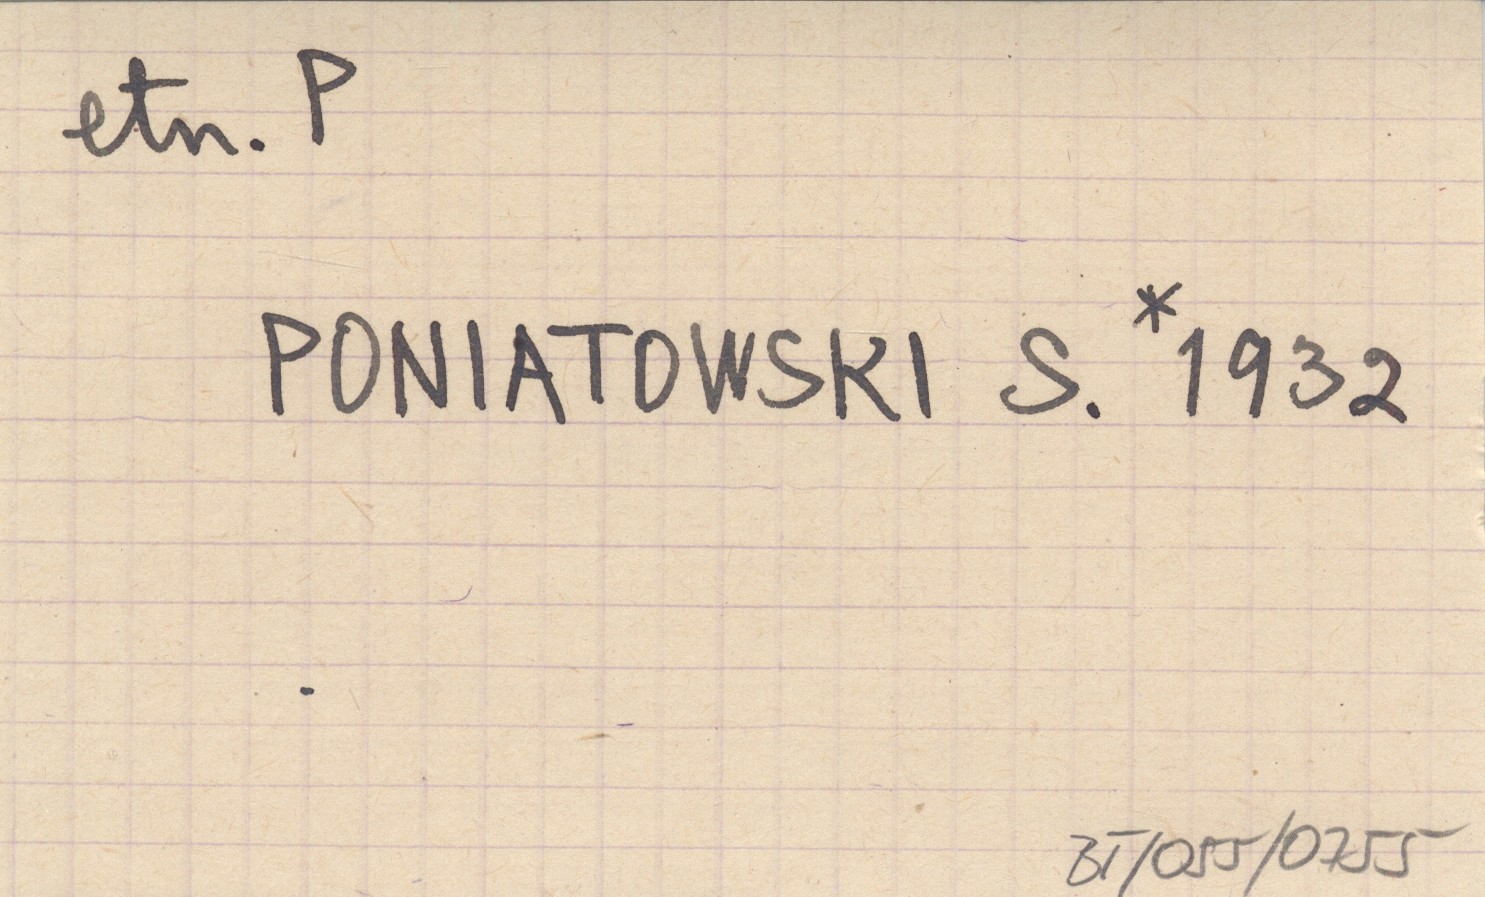 etn. P
PONIATOWSKI S. *1932
BT/055/0755